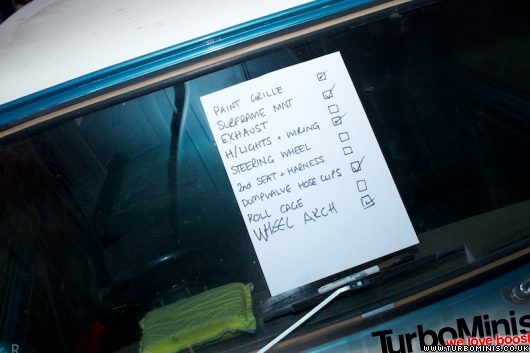 PAINT GRILLE
SUBFRAME MNT
EXHAUST
H/LIGHTS + WIRING
STEERING WHEEL
2nd SEAT + HARNESS
DUMPVALVE HOSE CLIPS
ROLL CAGE
WHEEL ARCH
TurboMinis
we love boost
WWW.TURBOMINIS.CO.UK